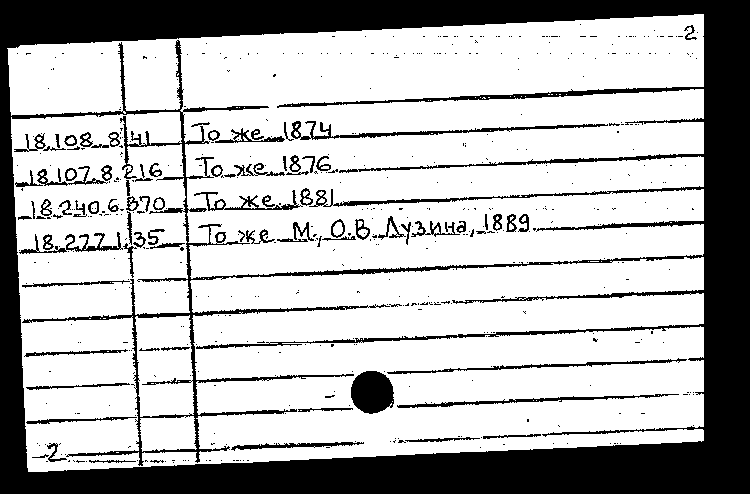 2
18.108.8.41 То же 1874
18.107.8.216 То же 1876
18.240.6.370 То же 1881
18.277.1.35 То же М., О.В. Лузина, 1889
2